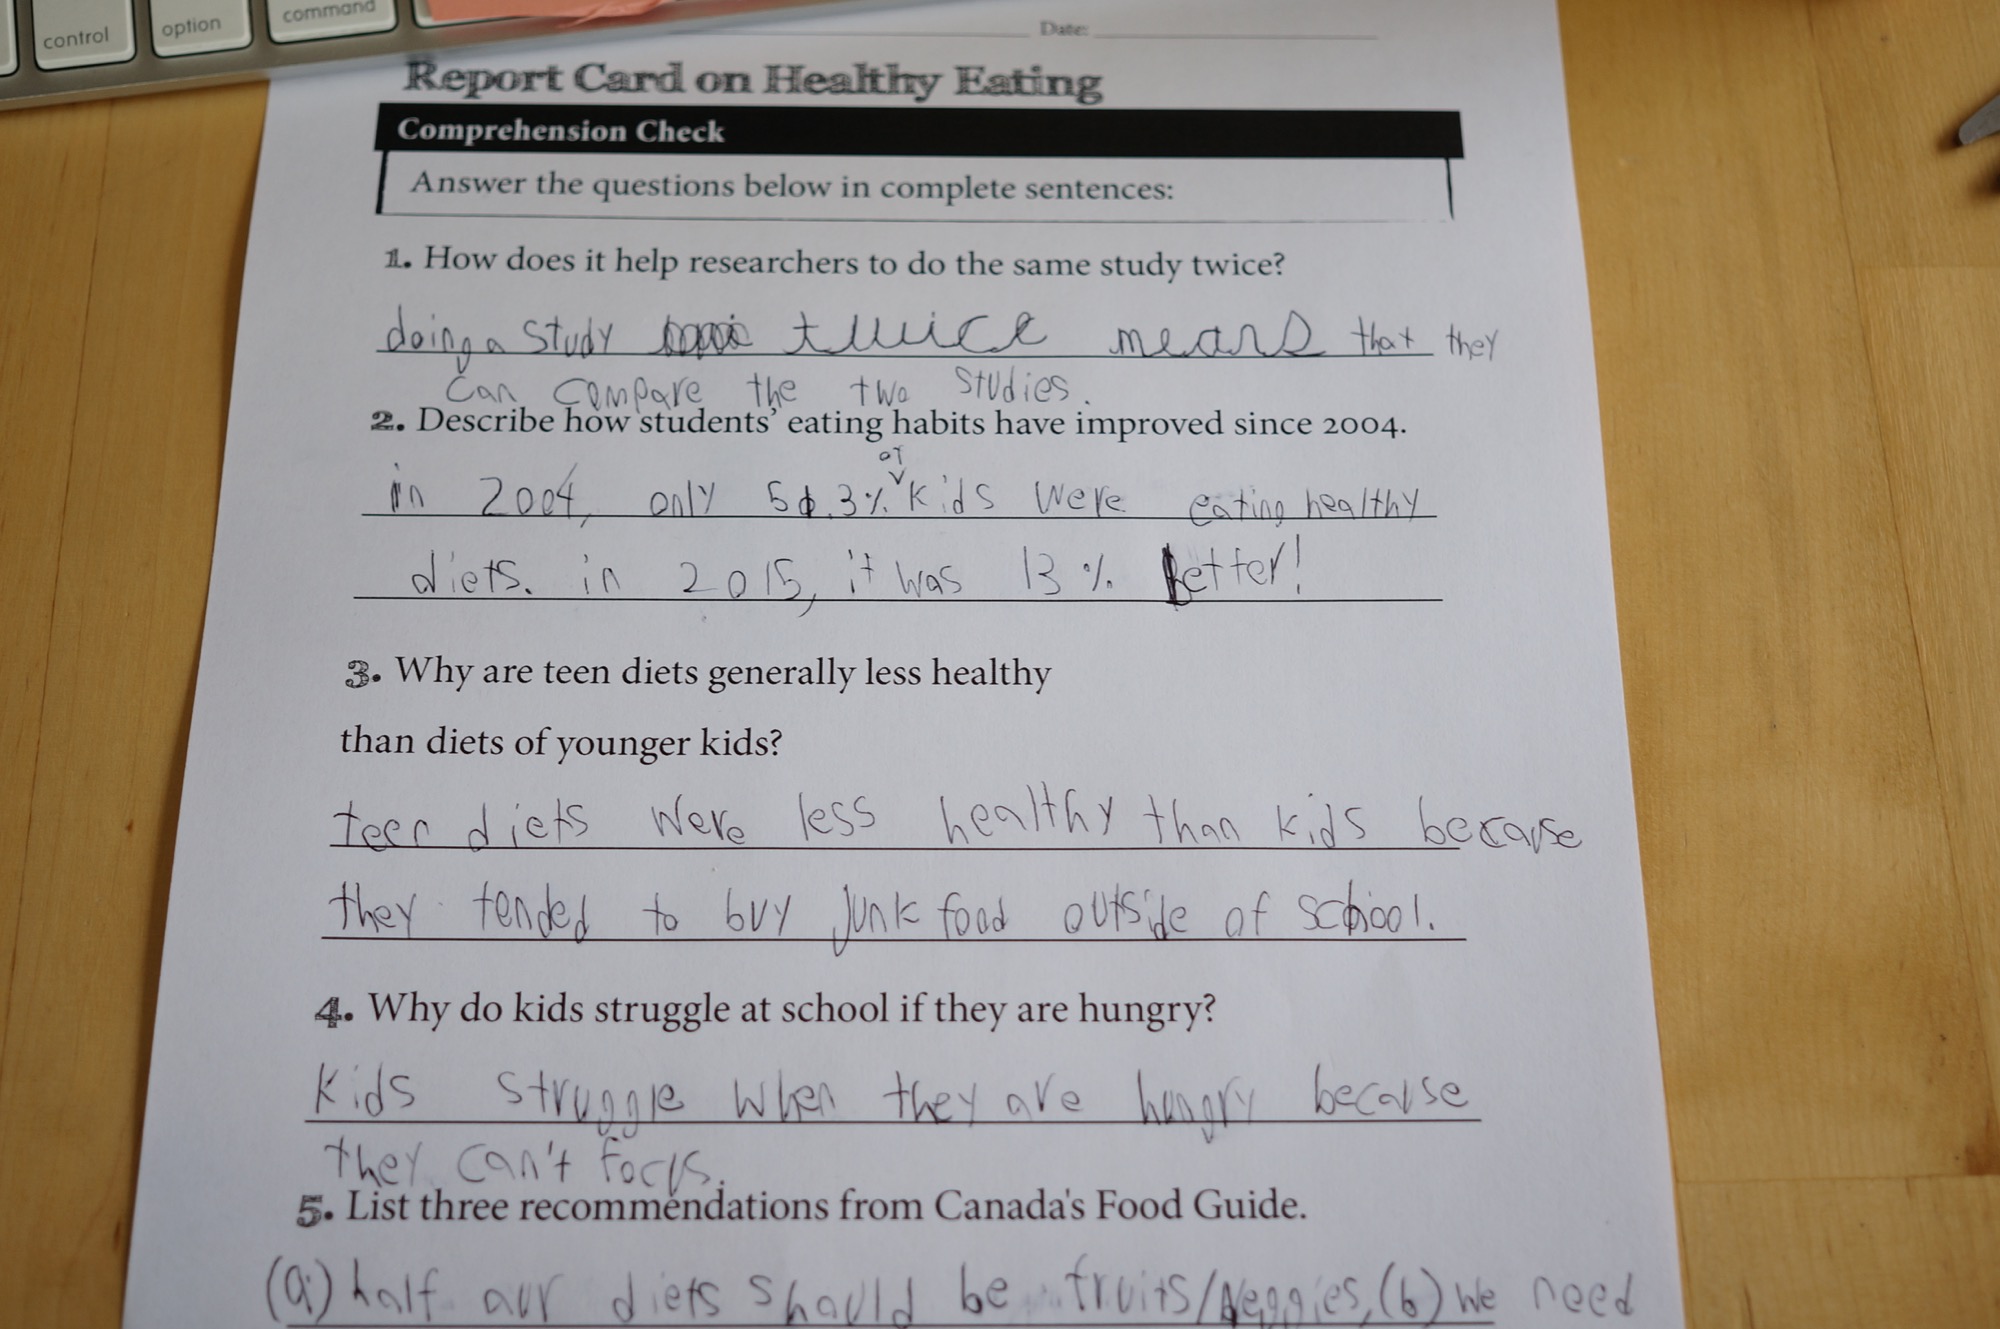 control option command
Date:
Report Card on Healthy Eating
Comprehension Check
Answer the questions below in complete sentences:
1. How does it help researchers to do the same study twice?
doing a study twice means that they
can compare the two studies.
2. Describe how students' eating habits have improved since 2004.
of
in 2004, only 51.3% kids were eating healthy
diets. in 2015, it was 13% Better!
3. Why are teen diets generally less healthy
than diets of younger kids?
teen diets were less healthy than kids because
they tended to buy junk food outside of school.
4. Why do kids struggle at school if they are hungry?
Kids struggle when they are hungry because
they can't focus.
5. List three recommendations from Canada's Food Guide.
(a) half our diets should be fruits/veggies, (b) we need